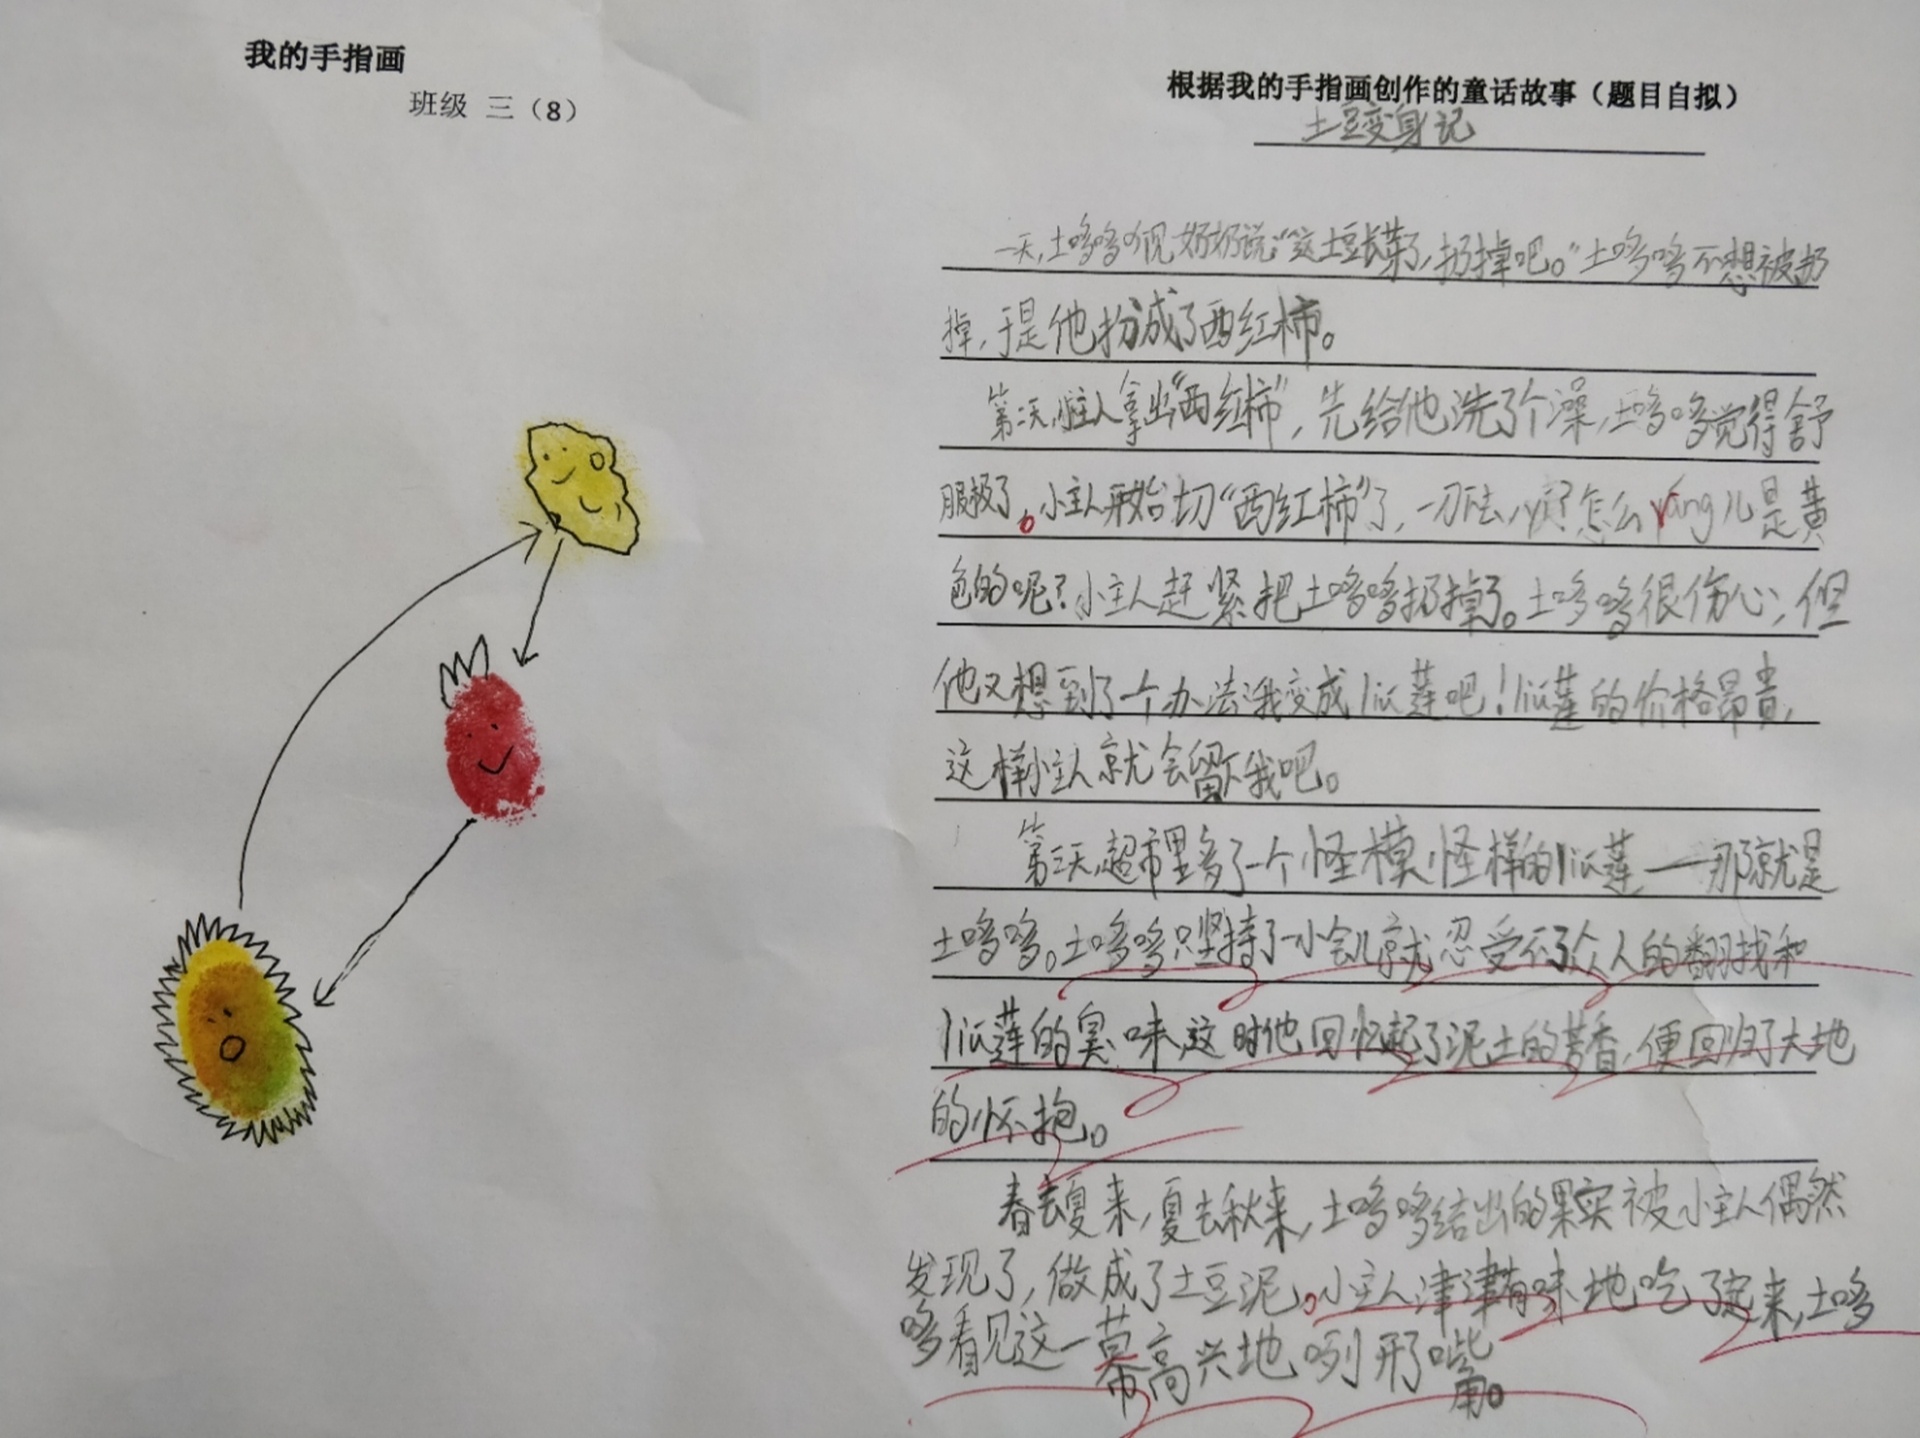 我的手指画
班级 三（8）
根据我的手指画创作的童话故事（题目自拟）
土豆变身记
一天,土哆哆听见奶奶说:“这土豆长芽了,扔掉吧。”土哆哆不想被扔
掉,于是他扮成了西红柿。
第二天,小主人拿出“西红柿”,先给他洗了个澡,土哆哆觉得舒
服极了。小主人开始切“西红柿”了,一刀下去,怎么yáng儿是黄
色的呢?小主人赶紧把土哆哆扔掉了。土哆哆很伤心,但
他又想到了一个办法:我变成liú莲吧!liú莲的价格昂贵,
这样小主人就会留下我吧。
第三天,超市里多了一个怪模怪样的liú莲,——那就是
土哆哆。土哆哆只坚持了一小会儿就忍受不了众人的翻找和
liú莲的臭味,这时他回忆起了泥土的芳香,便回归了大地
的怀抱。
春去夏来,夏去秋来,土哆哆结出的果实被小主人偶然
发现了,做成了土豆泥。小主人津津有味地吃了起来,土哆
哆看见这一幕高兴地咧开了嘴。